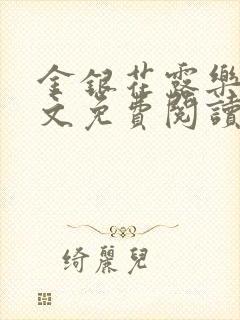 金銀花露樂
文免費閱讀
綺麗兒